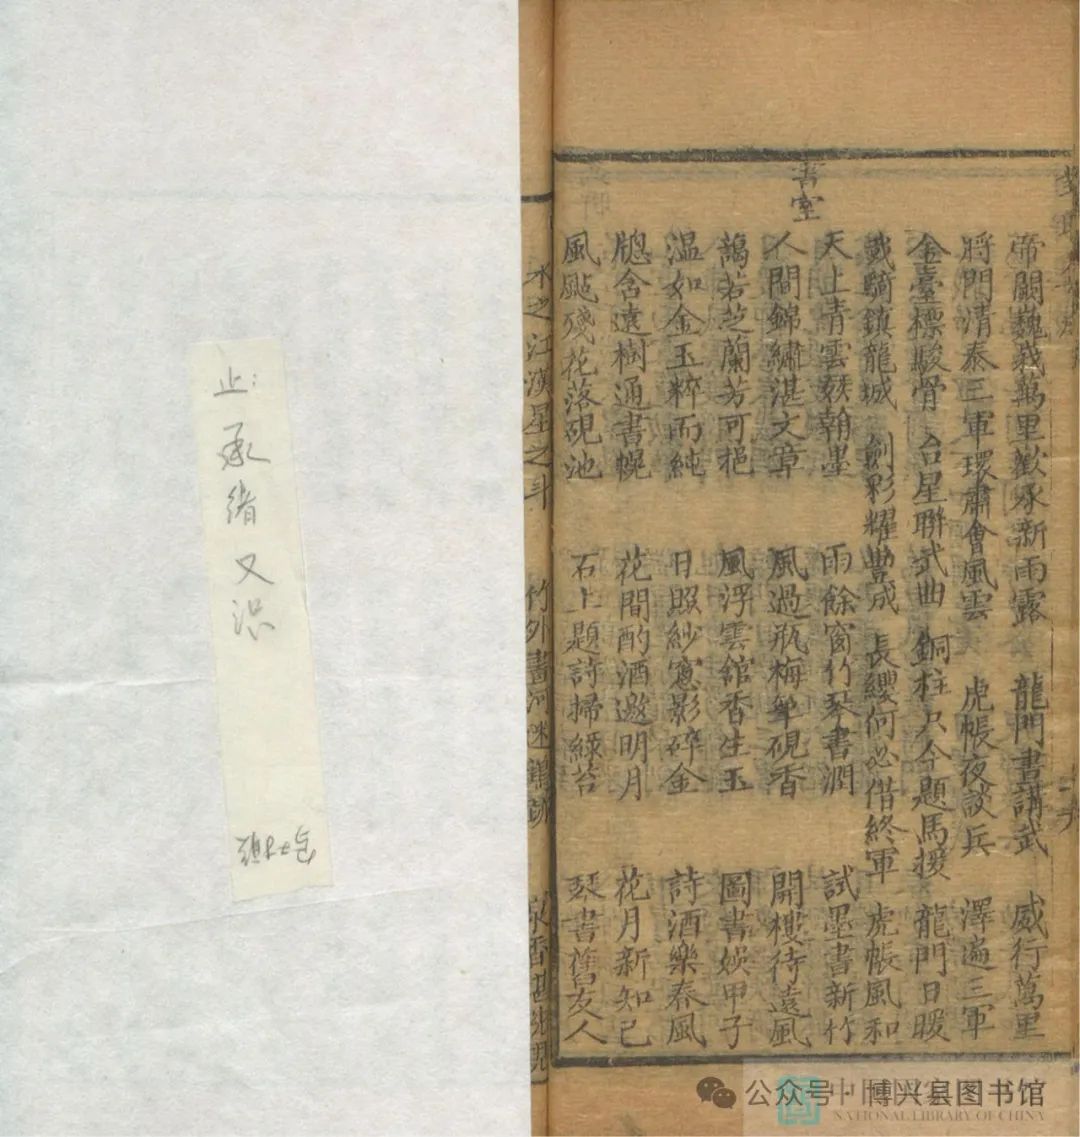 帝闕巍峩萬里歡承新雨露 龍門晝講武 威行萬里
將門清泰三軍環肅會風雲 虎帳夜談兵 澤遍三軍
金臺標駿骨 台星聯武曲 銅柱只今題馬援 龍門日暖
鐵騎鎮龍城 劍彩耀豐成 長纓何必借終軍 虎帳風和
書室
天上青雲 翰墨 雨餘窗竹琴書潤 試墨書新竹
人間錦繡湛文章 風過瓶梅筆硯香 開樓待遠風
藹若芝蘭芳可挹 風浮雲舘香生玉 圖書娛甲子
温如金玉粹而純 日照紗窻影碎金 詩酒樂春風
牕含遠樹通書幌 花間酌酒邀明月 花月新知已
風颭殘花落硯池 石上題詩掃綠苔 琴書舊友人
水之江漢星之斗 竹外書
止:
承緒又識
中国国家
NATIONAL LIBRARY OF CHINA
公众号·博兴县图书馆